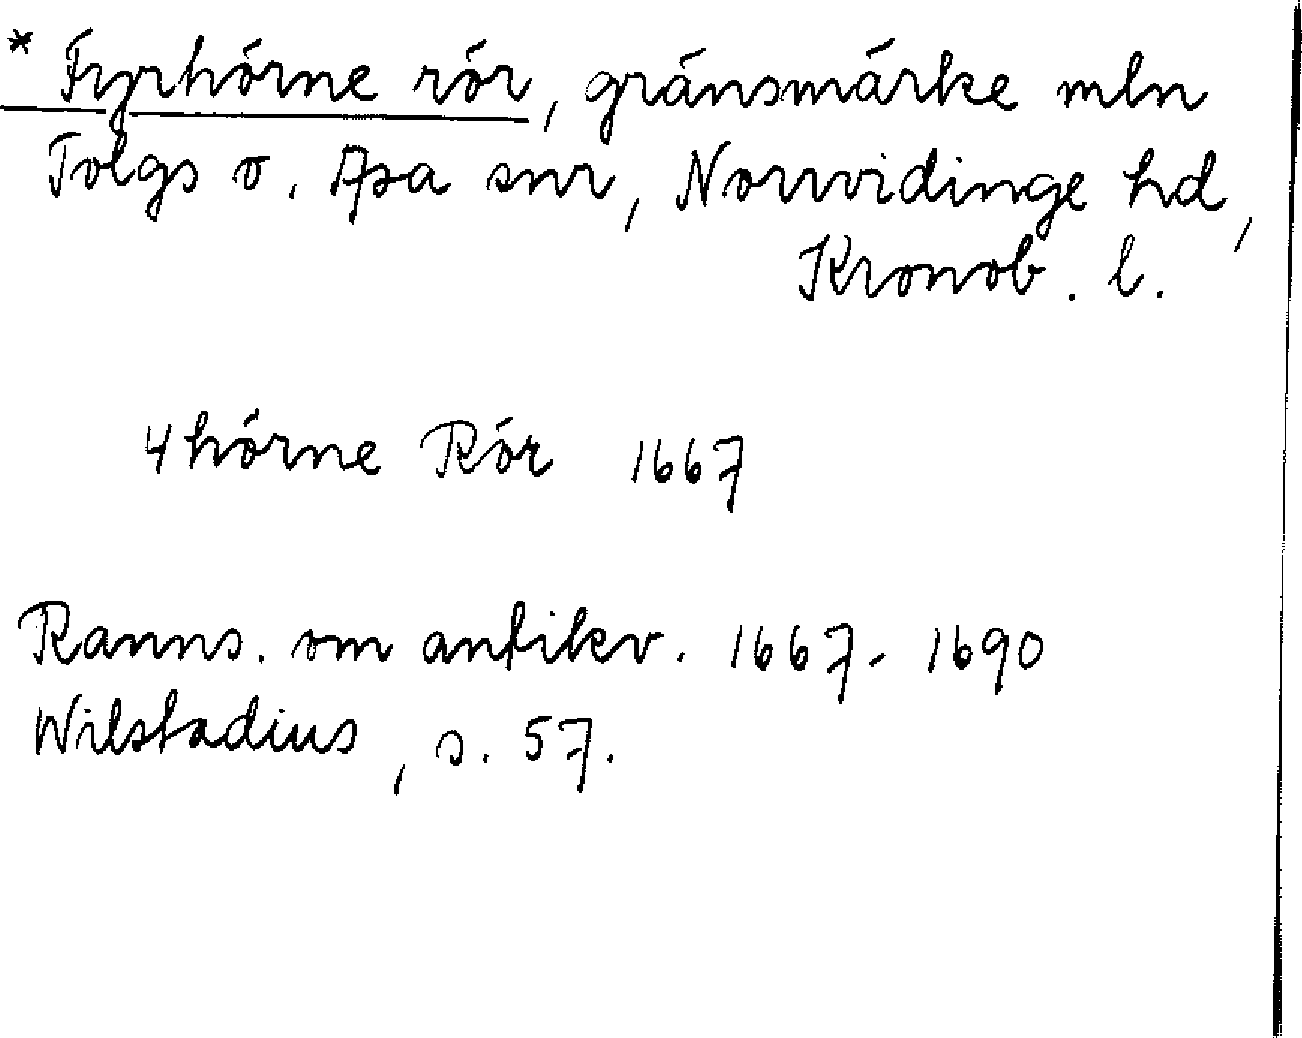 * Fyrhörne rör, gränsmärke mln
Tolgs o. Asa snr, Norrvidinge hd,
Kronob. l.
4 hörne Rör 1667
Ranns. om antikv. 1667-1690
Wilstadius, s. 57.